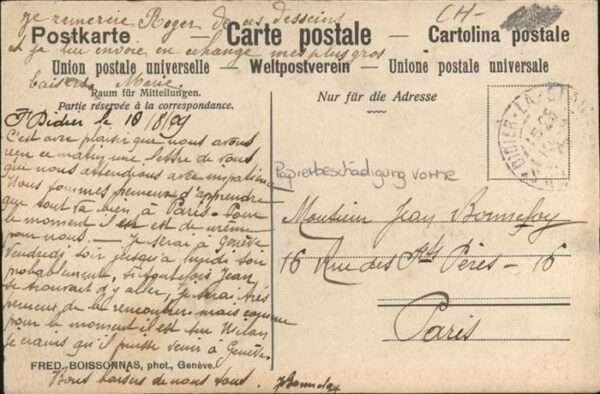 Je remercie Roger de ses dessins
et je lui envoie en échange mes plus gros
baisers Marie.
CH-
Postkarte — Carte postale — Cartolina postale
Union postale universelle — Weltpostverein — Unione postale universale
Raum für Mitteilungen.
Partie réservée à la correspondance.
Nur für die Adresse
St Didier le 10/8/09
C'est avec plaisir que nous avons
reçu ce matin une lettre de vous
que nous attendions avec impatience
Nous sommes heureux d'apprendre
que tout va bien à Paris. Pour
le moment il en est de même
pour nous. — Je serai à Genève
Vendredi soir jusqu'à lundi soir
probablement, si toutefois Jean
se trouvait d'y aller, je serai très
heureux de le rencontrer mais comme
pour le moment il est sur Milan
je crains qu'il puisse venir à Genève.
Bons baisers de nous tous.
JBonnefoy
Papierbeschädigung vorne
DIDIER-LA-
Monsieur Jean Bonnefoy
16 Rue des Sts Pères - 16
Paris
FRED. BOISSONNAS, phot., Genève.